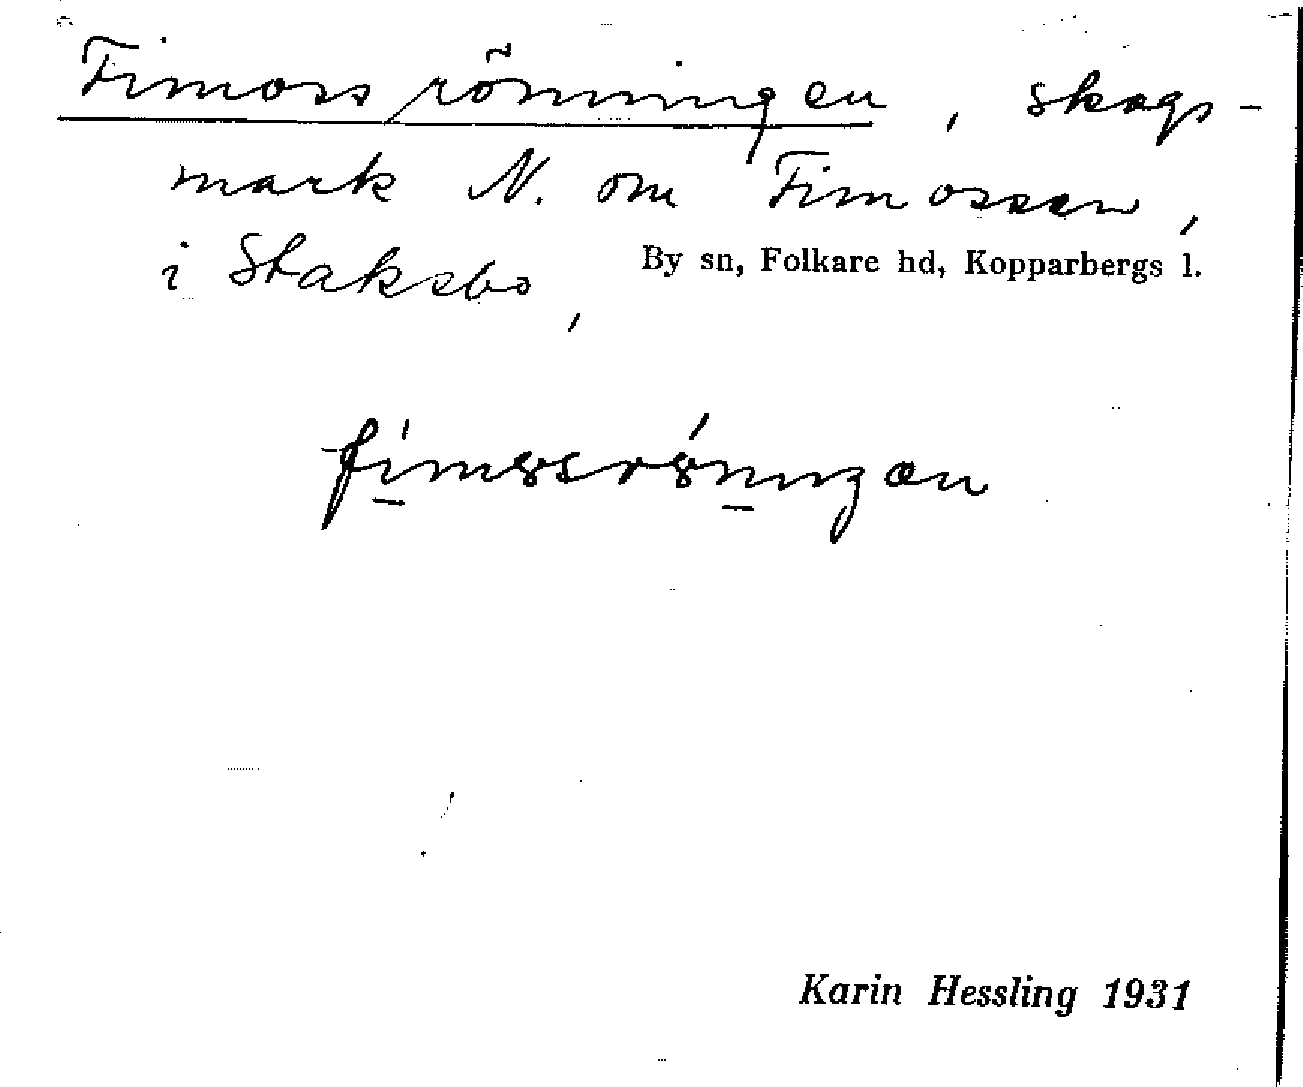 Fimossröningen, skogs-
mark N. om Fimossen,
i Staksbo, By sn, Folkare hd, Kopparbergs l.
Karin Hessling 1931